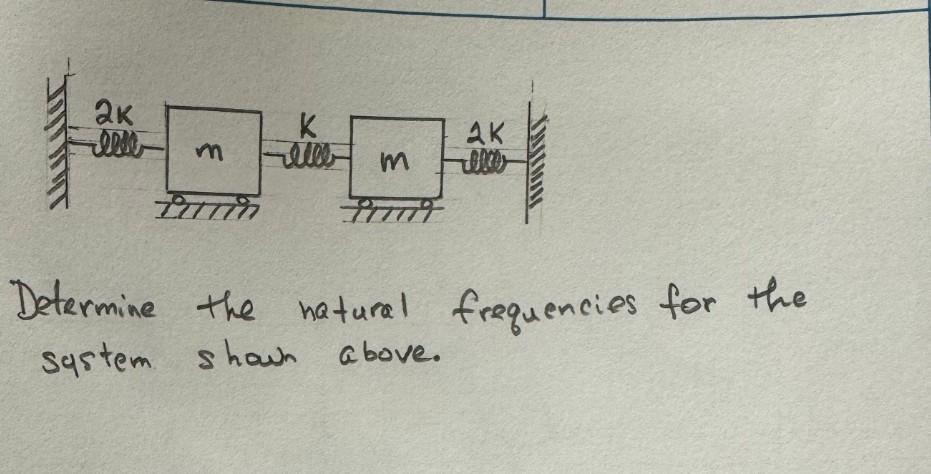 2K K 2K
m m
Determine the natural frequencies for the
system shown above.